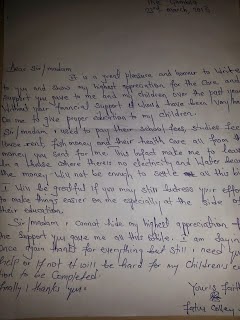 22nd March, 2018
Dear Sir/madam
It is a great pleasure and honour to write
to you and show my highest appreciation for the Care and
Support you gave to me and my children over the past years
Without your financial support it would have been very hard
On me to give proper education to my children.
Sir/madam, I used to pay their school fees, studies fee
house rent, fish money and their health care all from the
money you send for me. This infact make me to leave
in a house where there is no electricity and Water because
the money Will not be enough to settle all this bills
I Will be grateful if you may still Redress your effort
to make things easier on me especially at the side of
their education.
Sir/madam, I cannot hide my highest appreciation for
the support you gave me all this while. I am saying
Once again thanks for everything but still i need your
help or if not it will be hard for my Children's educa
tion to be Completed.
Finally I thanks you.
Yours faith
Fatou Ceesay